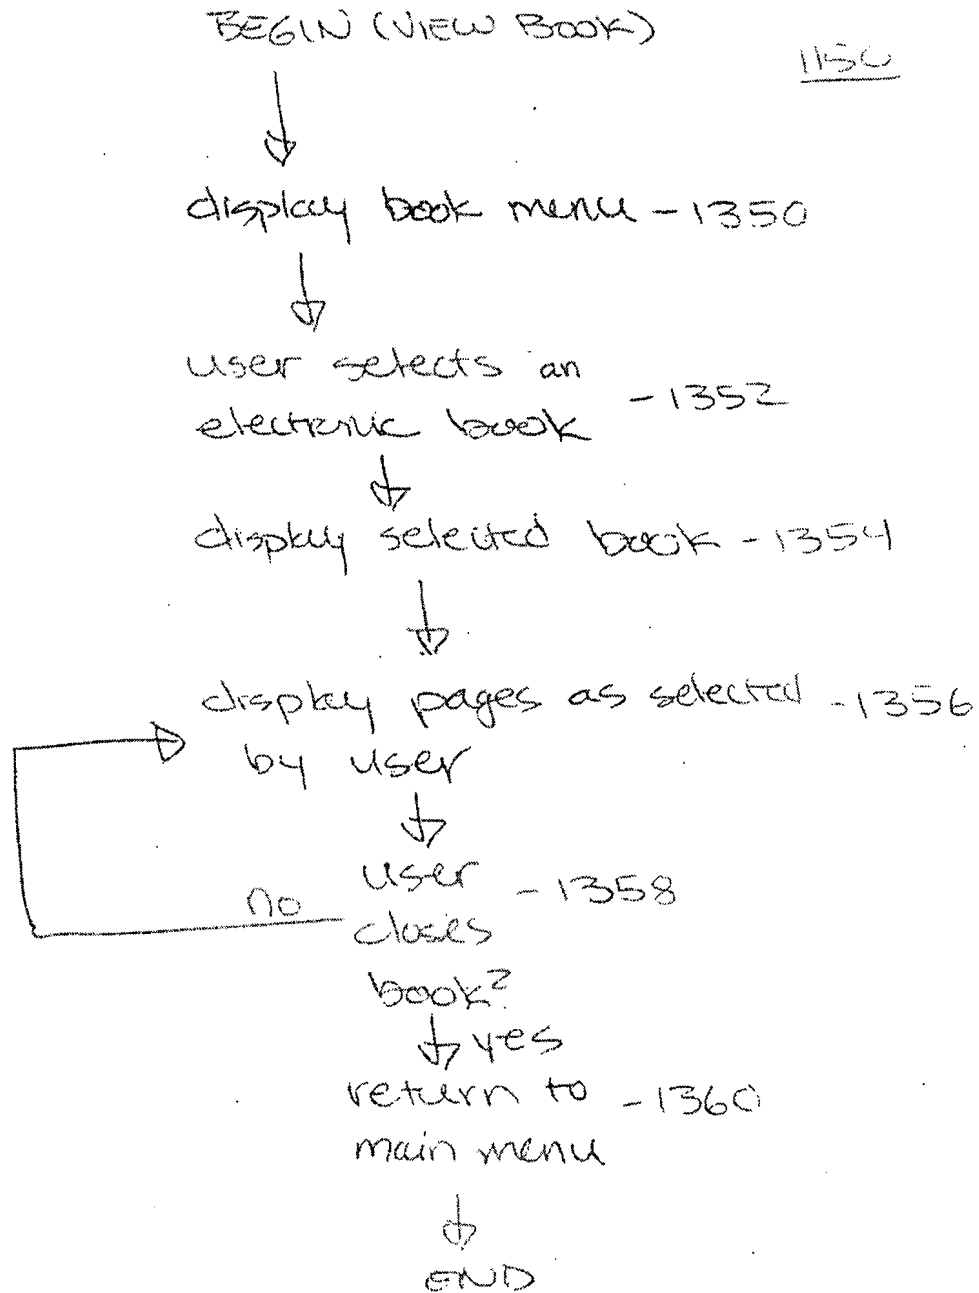 BEGIN (VIEW BOOK)
1150
display book menu - 1350
user selects an
electronic book - 1352
display selected book - 1354
display pages as selected - 1356
by user
user - 1358
no
closes
book?
yes
return to - 1360
main menu
END